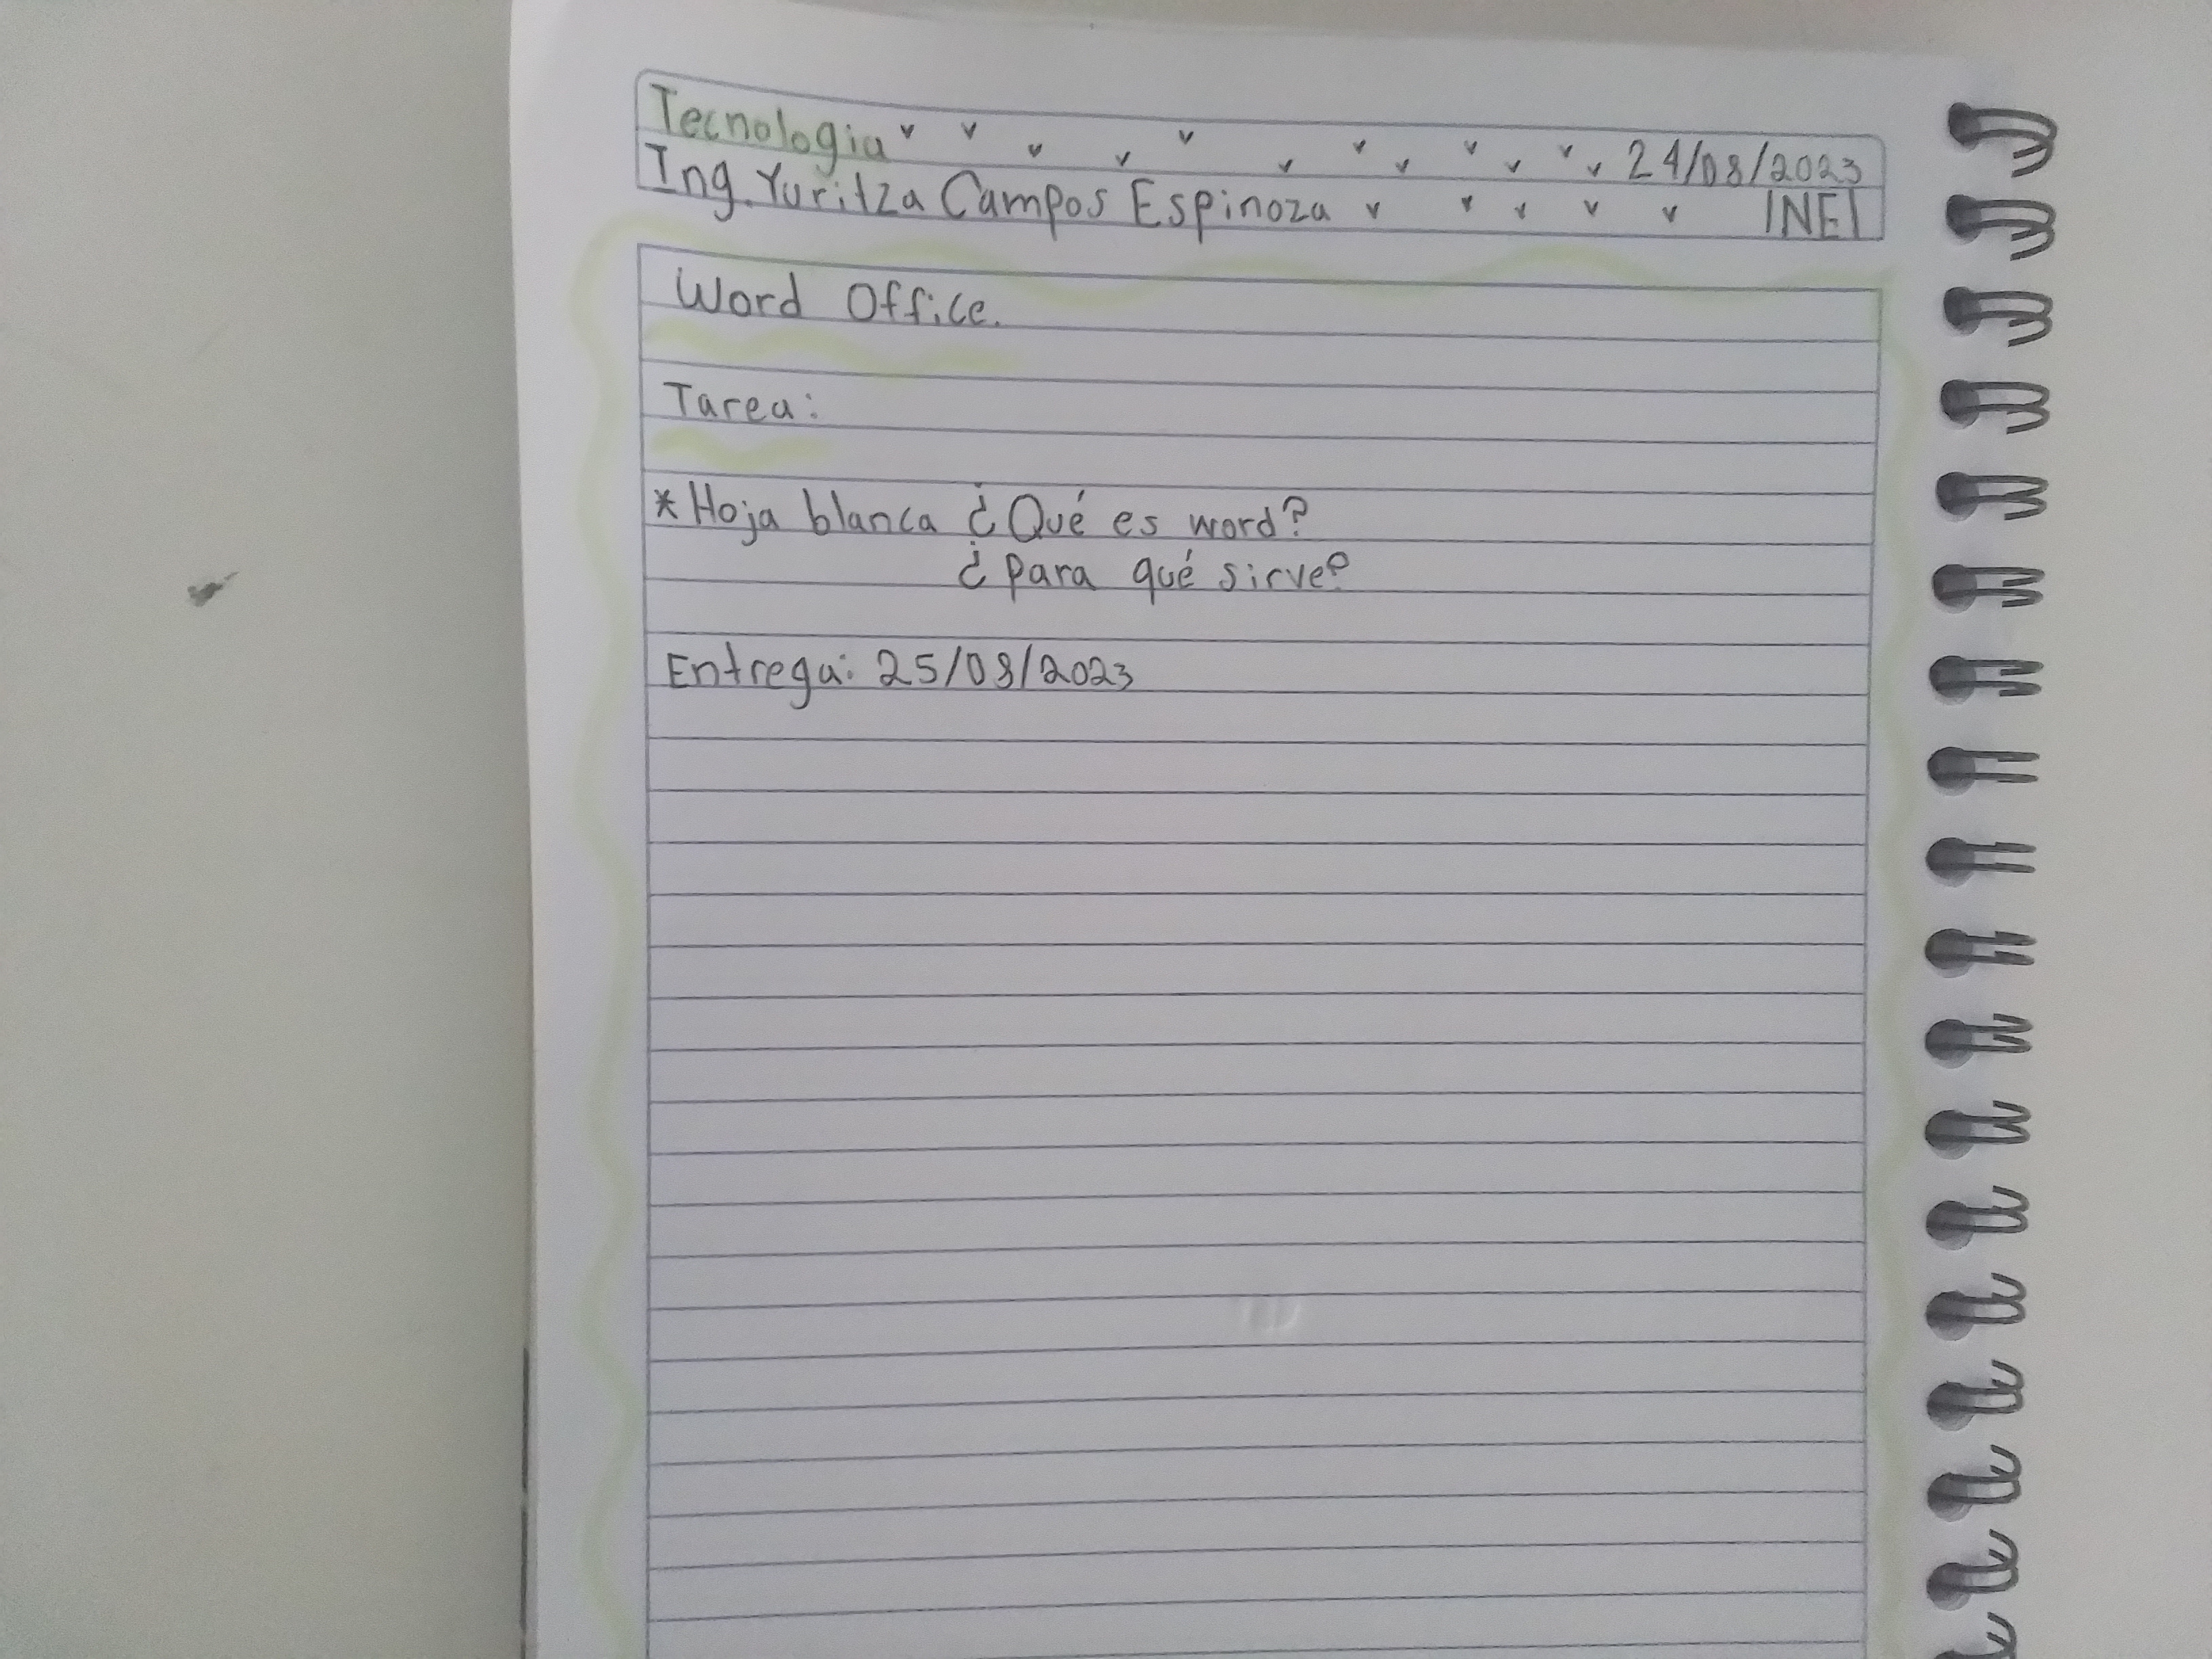 Tecnologia 24/08/2023
Ing. Yuritza Campos Espinoza INEI
Word Office.
Tarea:
*Hoja blanca ¿Qué es word?
¿Para qué sirve?
Entrega: 25/08/2023